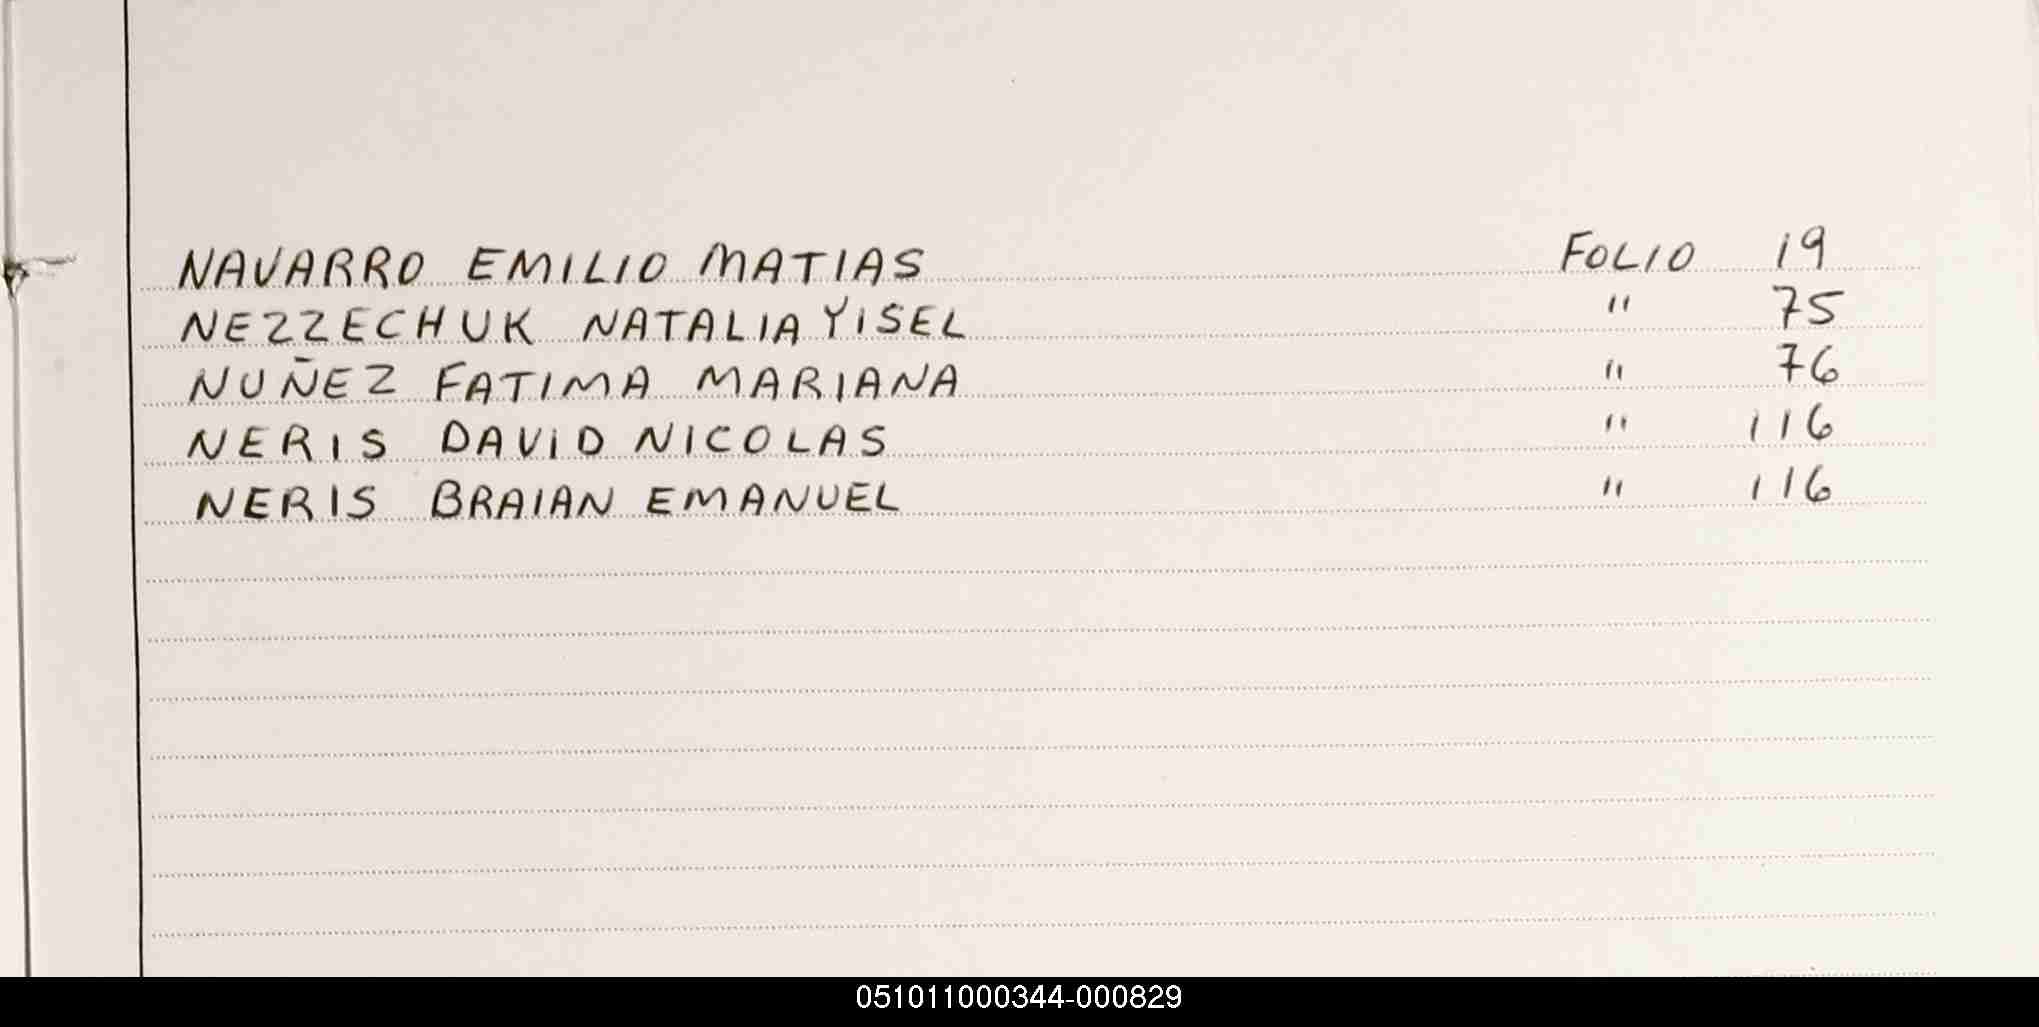 NAVARRO EMILIO MATIAS FOLIO 19
NEZZECHUK NATALIA YISEL " 75
NUÑEZ FATIMA MARIANA " 76
NERIS DAVID NICOLAS " 116
NERIS BRAIAN EMANUEL " 116
051011000344-000829